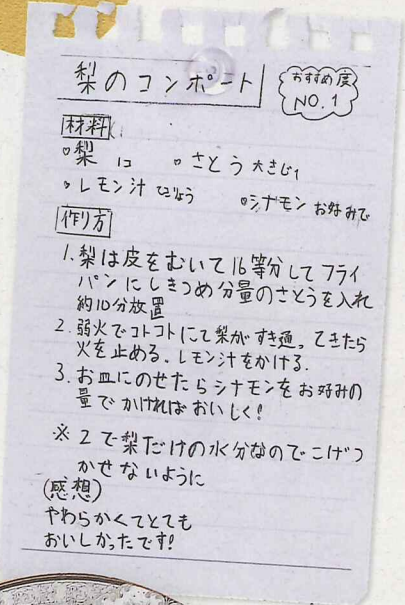 梨のコンポート
おすすめ度
NO.1
材料
・梨 1コ ・さとう 大さじ1
・レモン汁 てきりょう ・シナモン お好みで
作り方
1. 梨は皮をむいて16等分してフライ
パンにしきつめ分量のさとうを入れ
約10分放置
2. 弱火でコトコトにて梨がすき通ってきたら
火を止める。レモン汁をかける.
3. お皿にのせたらシナモンをお好みの
量でかければおいしく!
※ 2で梨だけの水分なのでこげつ
かせないように
(感想)
やわらかくてとても
おいしかったです!